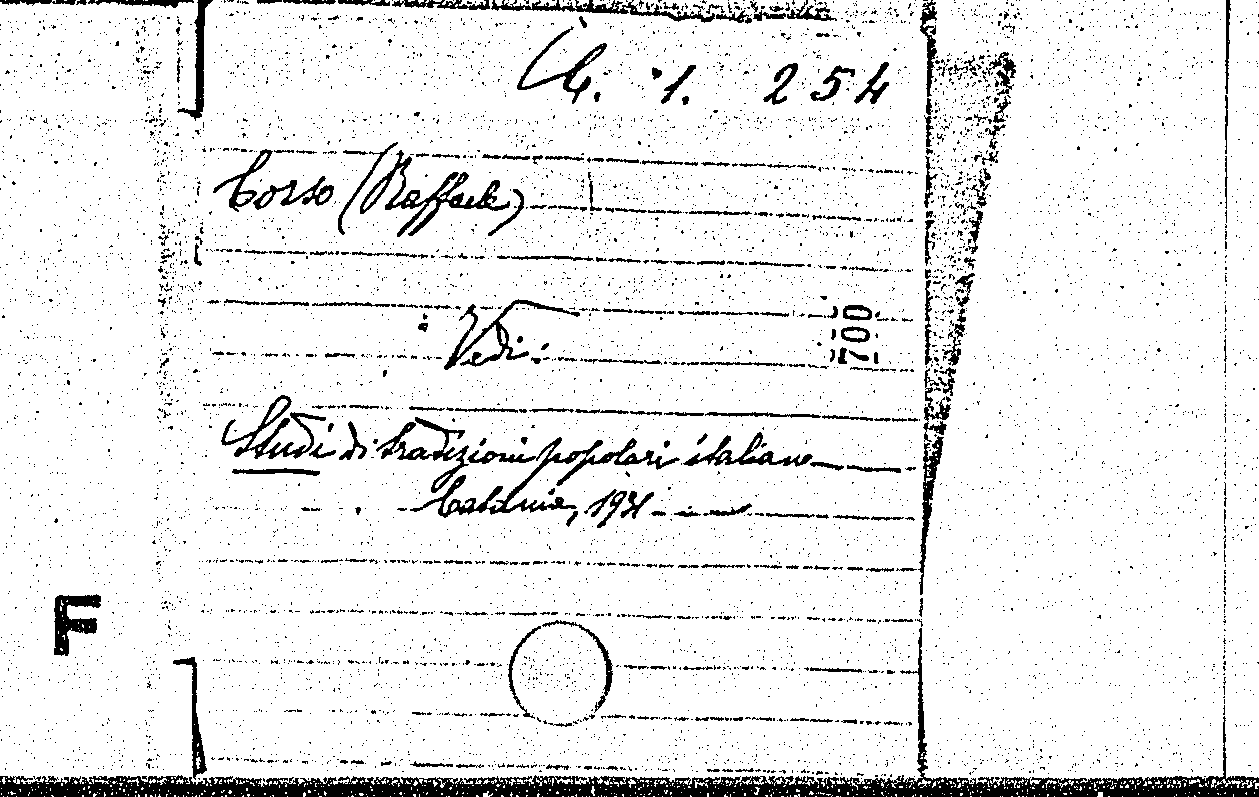 1. 254
Corso (Raffaele)
700
Vedi:
Studi di tradizioni popolari italiane
Catania, 1931
F